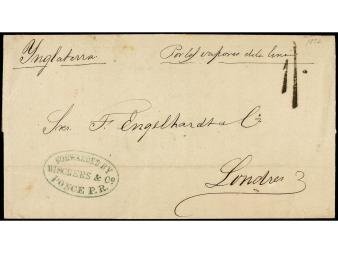 Ynglaterra
Por los vapores de la linea
Sres. F. Engelhardt & Co.
Londres
FORWARDED BY
WISCHERS & Co.
PONCE P.R.